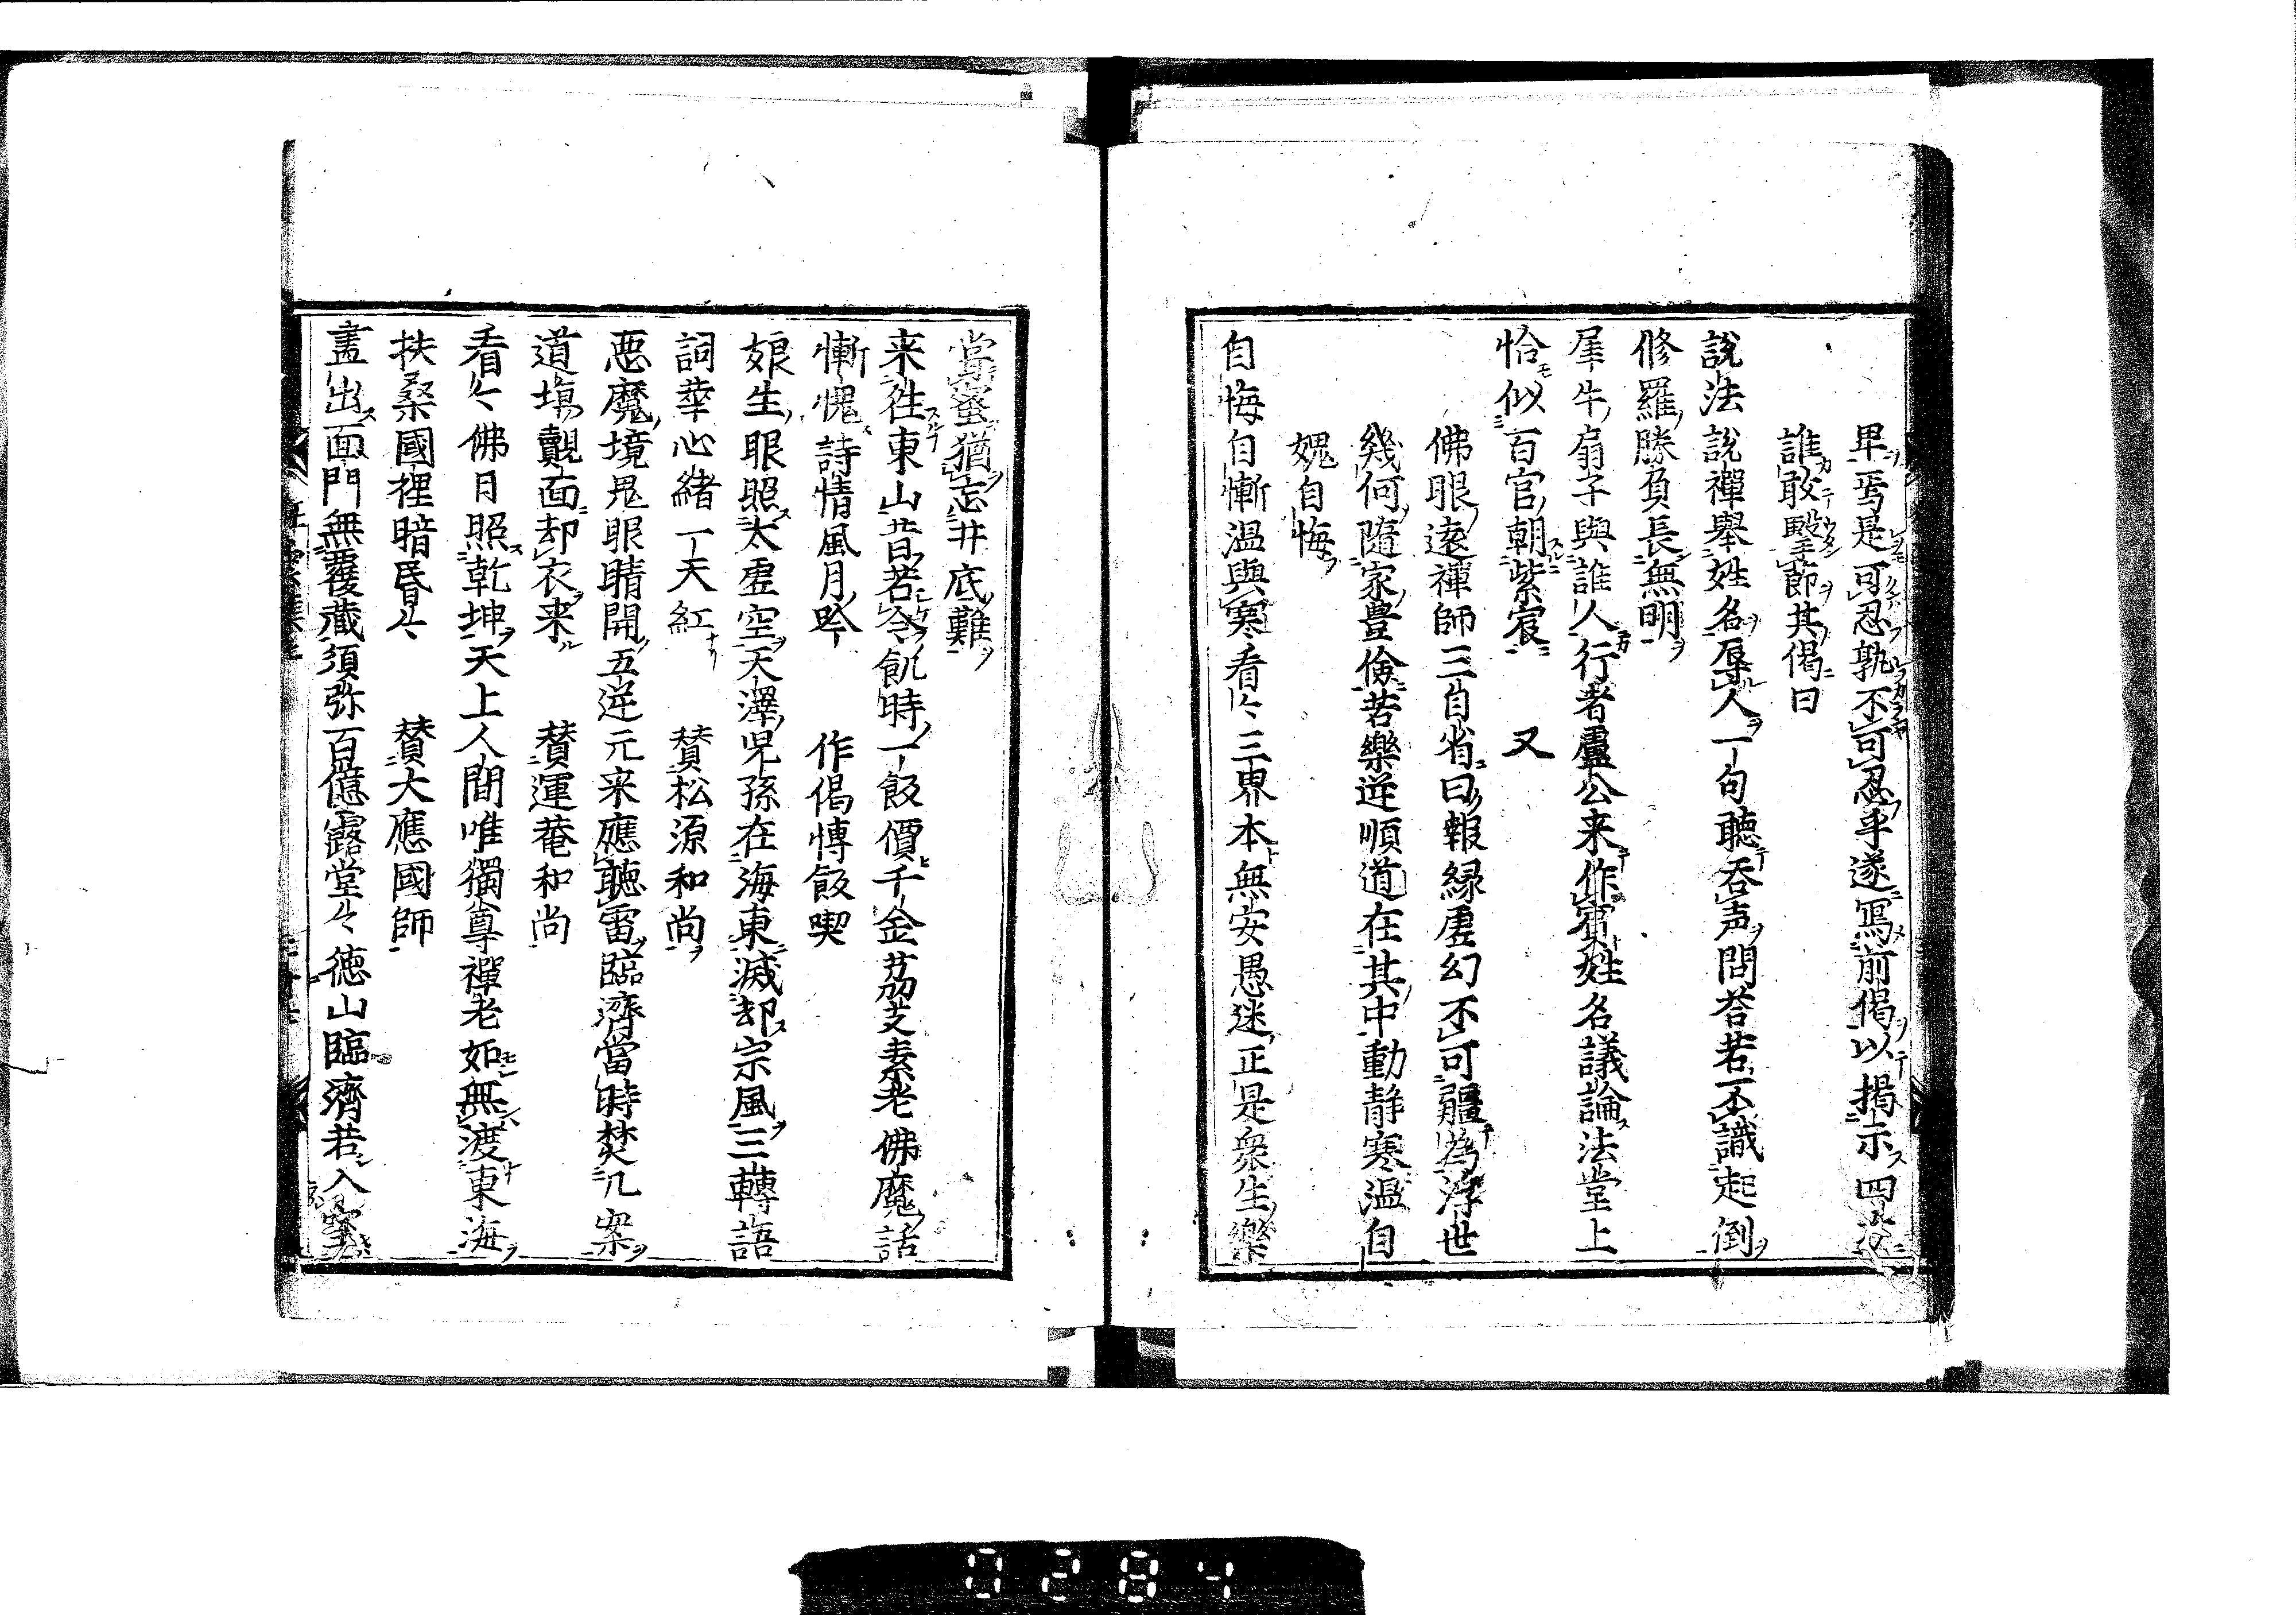 畢焉是可忍孰不可忍乎遂寫前偈以掲示四
誰敢擊節其偈曰
說法說禪舉姓名辱人一句聽吞声問答若不識起倒
修羅勝負長無明
犀牛扇子與誰人行者盧公来作賓姓名議論法堂上
恰似百官朝紫宸　又
佛眼遠禪師三自省曰報縁虛幻不可彊為浮世
幾何隨家豊儉苦樂逆順道在其中動静寒温自
媿自悔
自悔自慚温與寒看々三界本無安愚迷正是衆生樂
嘗蜜猶忘井底難
来往東山昔若今飢時一飯價千金茘支素老佛魔話
慚愧詩情風月吟　作偈愽飯喫
娘生眼照太虛空天澤児孫在海東滅却宗風三轉語
詞華心緒一天紅　賛松源和尚
悪魔境鬼眼睛開五逆元来應聽雷臨濟當時焚几案
道塲覿面却衣来　賛運菴和尚
看々佛日照乾坤天上人間唯獨尊禪老如無渡東海
扶桒國裡暗昏々　賛大應國師
畫出面門無覆蔵須弥百億露堂々徳山臨濟若入室
0284